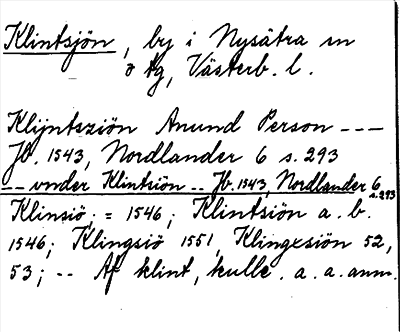 Klintsjön, by i Nysätra sn
o tg, Västerb. l.
Klijntsziön Anund Person ---
Jb. 1543, Nordlander 6 s. 293
-- vnder Klintsiön .. Jb. 1543, Nordlander 6 s. 293
Klinsiö; = 1546; Klintsiön a. b.
1546; Klingsiö 1551, Klingesiön 52,
53; -- Af klint, kulle. a. a. anm.